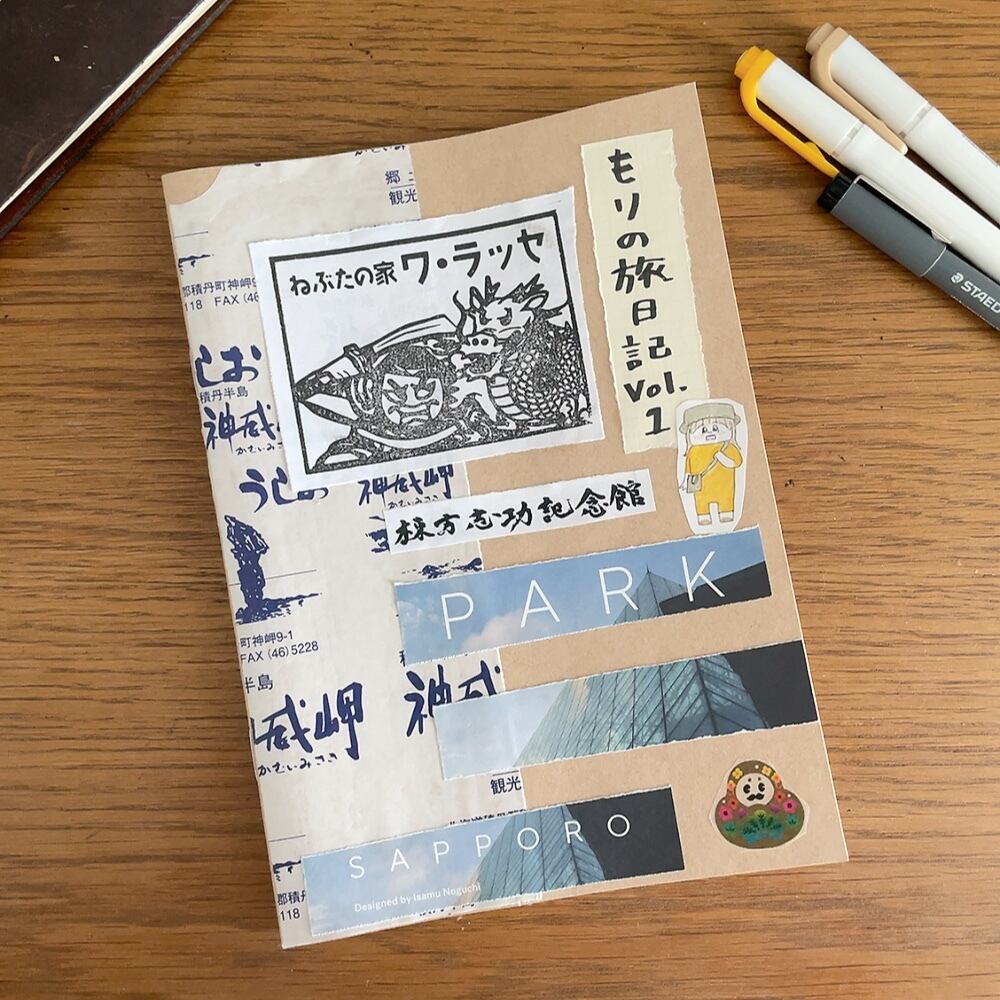 郷土
観光
郡積丹町神岬9
118 FAX (46
しお
積丹半島
神威
かむいみ
うしお
神威岬
町神岬9-1
FAX (46)5228
半島
威岬
かむいみさき
神威
観光
郡積丹
118
ねぶたの家 ワ・ラッセ
もりの旅日記 Vol. 1
棟方志功記念館
PARK
SAPPORO
Designed by Isamu Noguchi
STAED